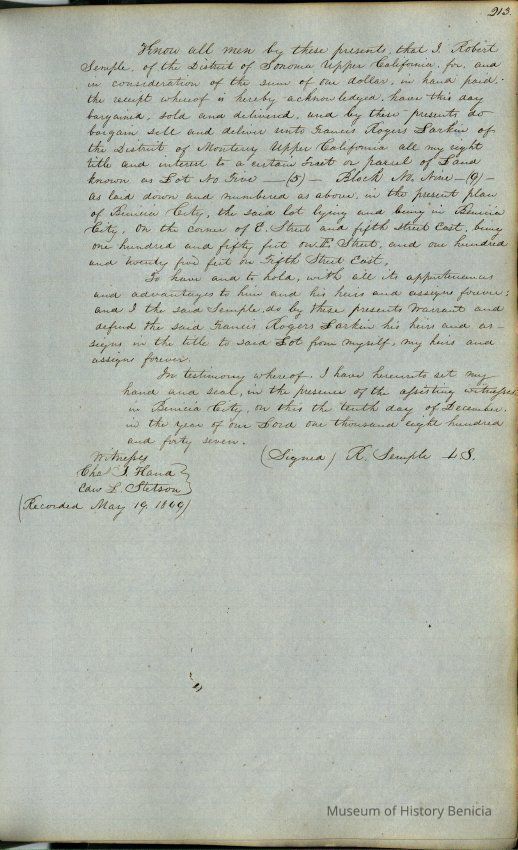 213.
Know all men by these presents, that I Robert
Semple, of the District of Sonoma Upper California, for, and
in consideration of the sum of one dollar, in hand paid,
the receipt whereof is hereby acknowledged, have this day
bargained, sold and delivered, and by these presents do
bargain sell and deliver unto Francis Rogers Larkin of
the District of Monterey Upper California all my right
title and interest to a certain tract or parcel of Land
known as Lot No Five — (5) — Block No. Nine — (9) —
as laid down and numbered as above, in the present plan
of Benicia City, the said lot lying and being in Benicia
City, on the corner of E. Street and fifth street East, being
one hundred and fifty feet on E Street, and one hundred
and twenty five feet on Fifth Street East,
To have and to hold, with all its appurtenances
and advantages to him and his heirs and assigns forever;
and I the said Semple, do by these presents warrant and
defend the said Francis Rogers Larkin his heirs and as-
signs in the title to said Lot from myself, my heirs and
assigns forever.
In testimony whereof, I have hereunto set my
hand and seal, in the presence of the assisting witnesses
in Benicia City, on this the tenth day of December,
in the year of our Lord one thousand eight hundred
and forty seven.
Witnesses (Signed) R. Semple L S.
Chas I. Hand
Edw L. Stetson
(Recorded May 19, 1849)
Museum of History Benicia